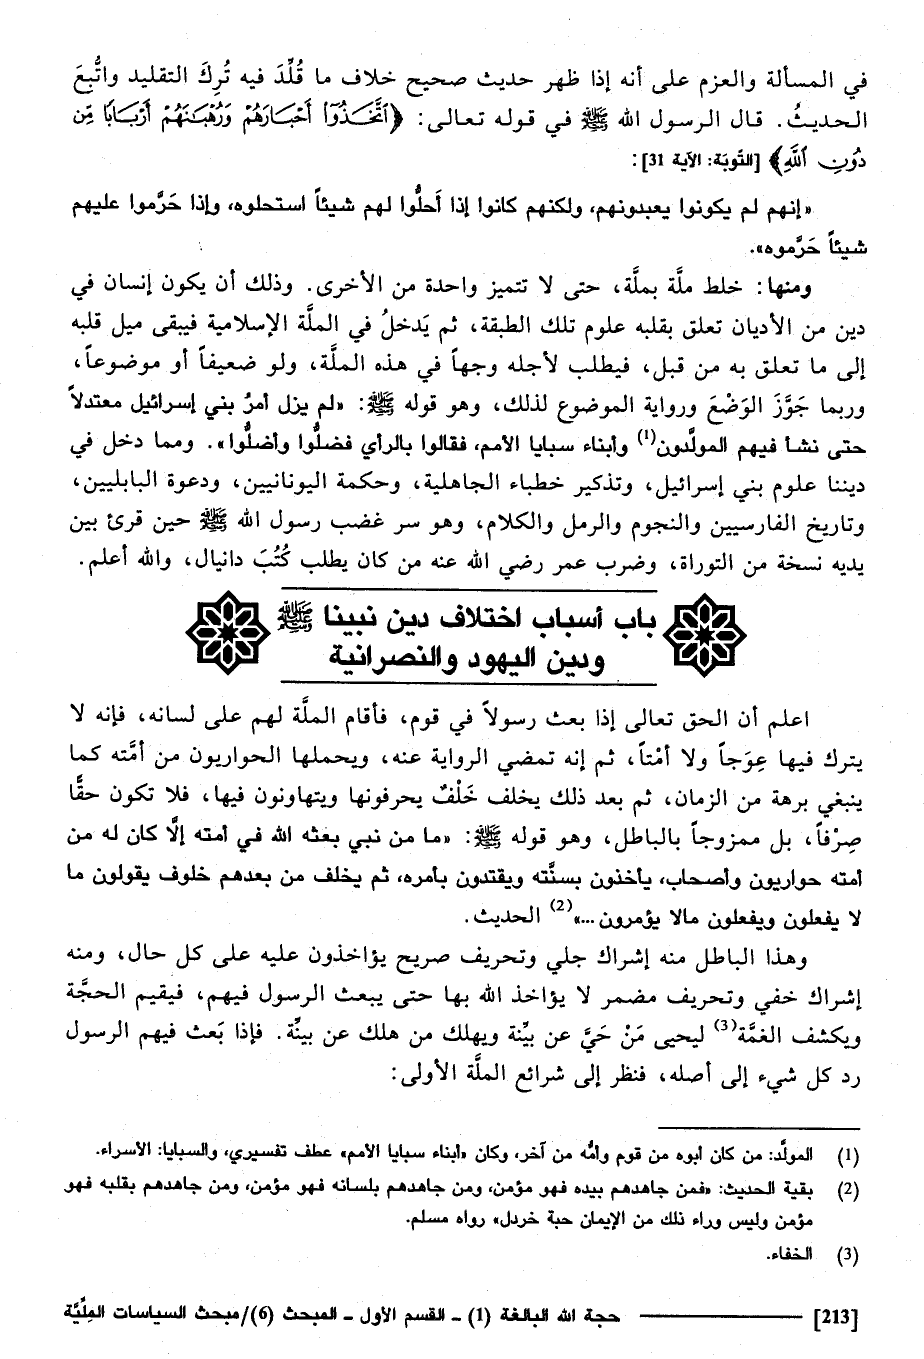 في المسألة والعزم على أنه إذا ظهر حديث صحيح خلاف ما قُلِّدَ فيه تُرِكَ التقليد واتُّبِعَ
الحديثُ. قال الرسول الله ﷺ في قوله تعالى: ﴿ٱتَّخَذُوٓا۟ أَحْبَارَهُمْ وَرُهْبَـٰنَهُمْ أَرْبَابًا مِّن
دُونِ ٱللَّهِ﴾ [التّوبَة: الآية 31]:
«إنهم لم يكونوا يعبدونهم، ولكنهم كانوا إذا أَحلُّوا لهم شيئاً استحلوه، وإذا حَرَّموا عليهم
شيئاً حَرَّموه».
ومنها: خلط ملَّة بملَّة، حتى لا تتميز واحدة من الأخرى. وذلك أن يكون إنسان في
دين من الأديان تعلق بقلبه علوم تلك الطبقة، ثم يَدخلُ في الملَّة الإسلامية فيبقى ميل قلبه
إلى ما تعلق به من قبل، فيطلب لأجله وجهاً في هذه الملَّة، ولو ضعيفاً أو موضوعاً،
وربما جَوَّزَ الوَضْعَ ورواية الموضوع لذلك، وهو قوله ﷺ: «لم يزل أمرُ بني إسرائيل معتدلاً
حتى نشأ فيهم المولَّدون(1) وأبناء سبايا الأمم، فقالوا بالرأي فضلُّوا وأضلُّوا». ومما دخل في
ديننا علوم بني إسرائيل، وتذكير خطباء الجاهلية، وحكمة اليونانيين، ودعوة البابليين،
وتاريخ الفارسيين والنجوم والرمل والكلام، وهو سر غضب رسول الله ﷺ حين قرئ بين
يديه نسخة من التوراة، وضرب عمر رضي الله عنه من كان يطلب كُتُبَ دانيال، والله أعلم.
باب أسباب اختلاف دين نبينا ﷺ
ودين اليهود والنصرانية
اعلم أن الحق تعالى إذا بعث رسولاً في قوم، فأقام الملَّة لهم على لسانه، فإنه لا
يترك فيها عِوَجاً ولا أَمْتاً، ثم إنه تمضي الرواية عنه، ويحملها الحواريون من أمَّته كما
ينبغي برهة من الزمان، ثم بعد ذلك يخلف خَلْفٌ يحرفونها ويتهاونون فيها، فلا تكون حقًّا
صِرْفاً، بل ممزوجاً بالباطل، وهو قوله ﷺ: «ما من نبي بعثه الله في أمته إلَّا كان له من
أمته حواريون وأصحاب، يأخذون بسنَّته ويقتدون بأمره، ثم يخلف من بعدهم خلوف يقولون ما
لا يفعلون ويفعلون مالا يؤمرون...»(2) الحديث.
وهذا الباطل منه إشراك جلي وتحريف صريح يؤاخذون عليه على كل حال، ومنه
إشراك خفي وتحريف مضمر لا يؤاخذ الله بها حتى يبعث الرسول فيهم، فيقيم الحجَّة
ويكشف الغمَّة(3) ليحيى مَنْ حَيَّ عن بيِّنة ويهلك من هلك عن بينِّة. فإذا بَعث فيهم الرسول
رد كل شيء إلى أصله، فنظر إلى شرائع الملَّة الأولى:
(1) المولَّد: من كان أبوه من قوم وأمُّه من آخر، وكان «أبناء سبايا الأمم» عطف تفسيري، والسبايا: الأسراء.
(2) بقية الحديث: «فمن جاهدهم بيده فهو مؤمن، ومن جاهدهم بلسانه فهو مؤمن، ومن جاهدهم بقلبه فهو
مؤمن وليس وراء ذلك من الإيمان حبة خردل» رواه مسلم.
(3) الخفاء.
[213] حجة الله البالغة (1) ـ القسم الأول ـ المبحث (6)/مبحث السياسات المِلِيَّة